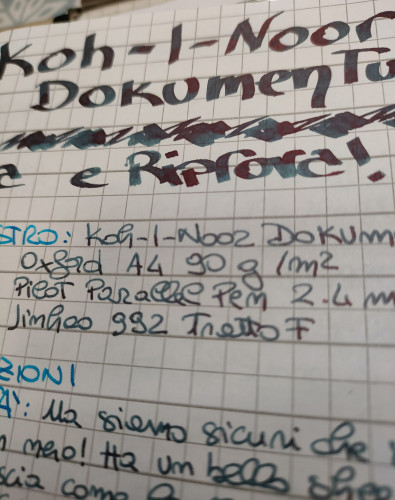 Koh-I-Noor
Dokumentu
a e Riprova!
STRO: Koh-I-Nooz Dokum
Oxford A4 90 g/m2
Pilot Parallel Pen 2.4 m
Jinhao 992 Tratto F
ZIONI
A': Ma siamo sicuri che
n nero! Ha un bello
scia come